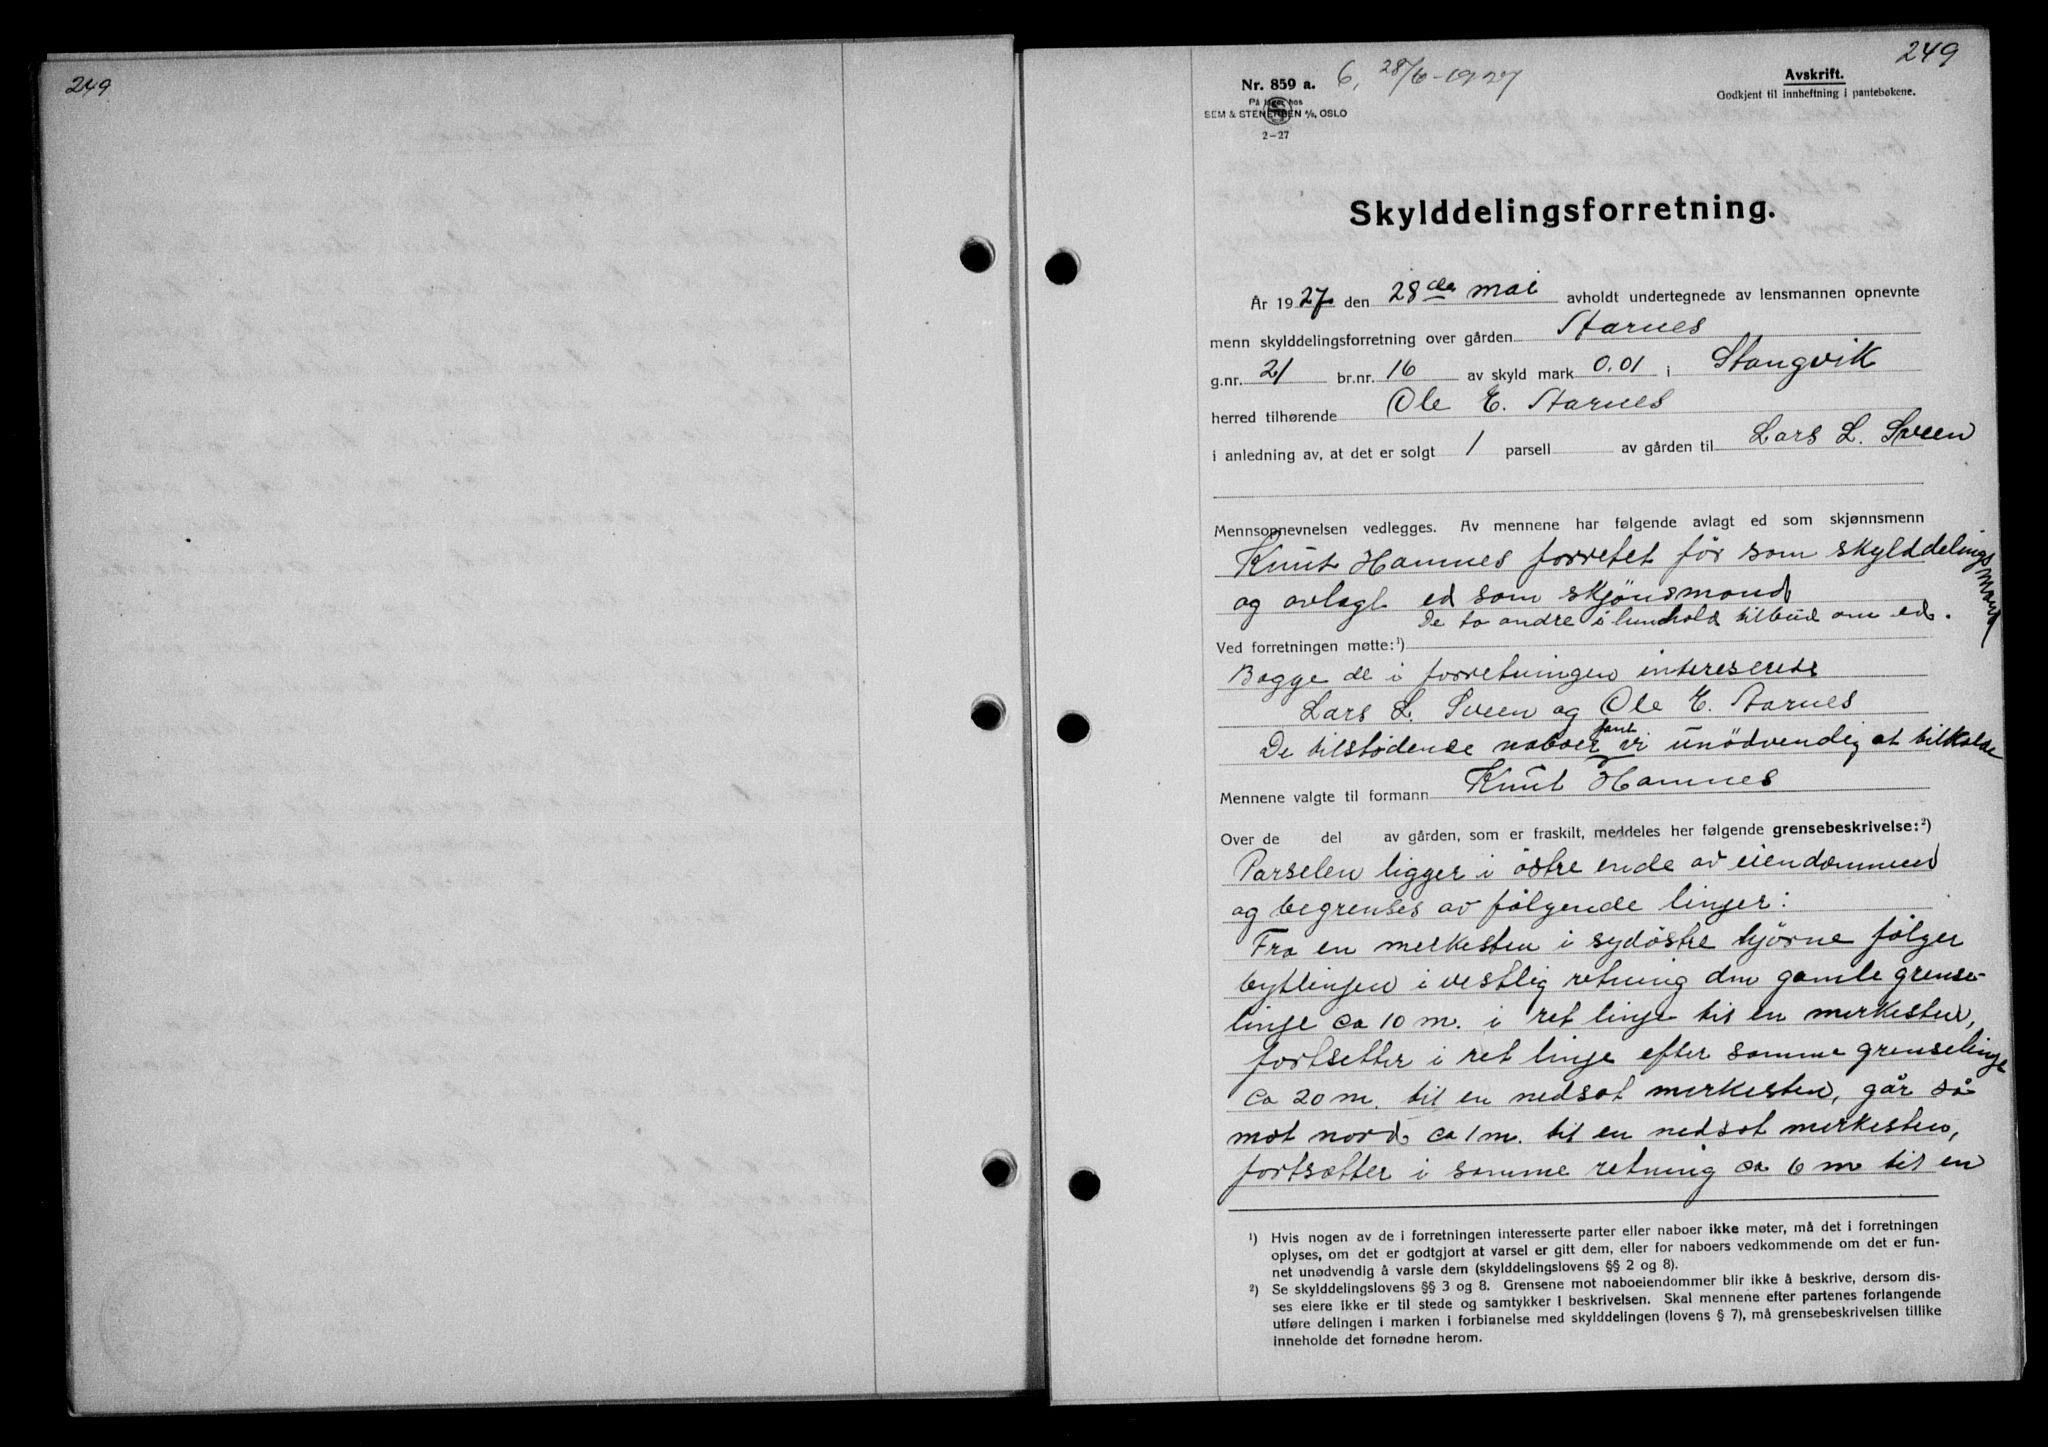 249
249
Nr. 859 a.
6, 28/6-1927
Avskrift.
Godkjent til innheftning i pantebøkene.
På lager hos
SEM & STENERSEN A/S, OSLO
2-27
Skylddelingsforretning.
År 1927 den 28de mai avholdt undertegnede av lensmannen opnevnte
menn skylddelingsforretning over gården Aarnes
g.nr. 21 br.nr. 16 av skyld mark 0,01 i Stangvik
herred tilhørende Ole E. Aarnes
i anledning av, at det er solgt 1 parsell av gården til Lars L. Sveen
Mennsopnevnelsen vedlegges. Av mennene har følgende avlagt ed som skjønnsmenn
Knut Hamnes forretet før som skylddelingsmand
og avlagt ed som skjønsmand
De to andre i lunhold tilbud om ed.
Ved forretningen møtte:¹)
Bagge de i forretningen intereserete
Lars L. Sveen og Ole E. Aarnes
De tilstødende naboer fant vi unødvendig at tilkalde
Mennene valgte til formann Knut Hamnes
Over de del av gården, som er fraskilt, meddeles her følgende grensebeskrivelse:²)
Parselen ligger i østre ende av eiendommen
og begrenses av følgende linjer:
Fra en merkesten i sydøstre hjørne følger
bytlinjen i vestlig retning den gamle grense-
linje ca 10 m. i ret linje til en merkesten,
fortsetter i ret linje efter samme grenselinje
ca 20 m. til en nedsat merkesten, går så
mot nord ca 1 m. til en nedsat merkesten,
fortsætter i samme retning ca 6 m til en
¹) Hvis nogen av de i forretningen interesserte parter eller naboer ikke møter, må det i forretningen
oplyses, om det er godtgjort at varsel er gitt dem, eller for naboers vedkommende om det er fun-
net unødvendig å varsle dem (skylddelingslovens §§ 2 og 8).
²) Se skylddelingslovens §§ 3 og 8. Grensene mot naboeiendommer blir ikke å beskrive, dersom dis-
ses eiere ikke er til stede og samtykker i beskrivelsen. Skal mennene efter partenes forlangende
utføre delingen i marken i forbinnelse med skylddelingen (lovens § 7), må grensebeskrivelsen tillike
inneholde det fornødne herom.